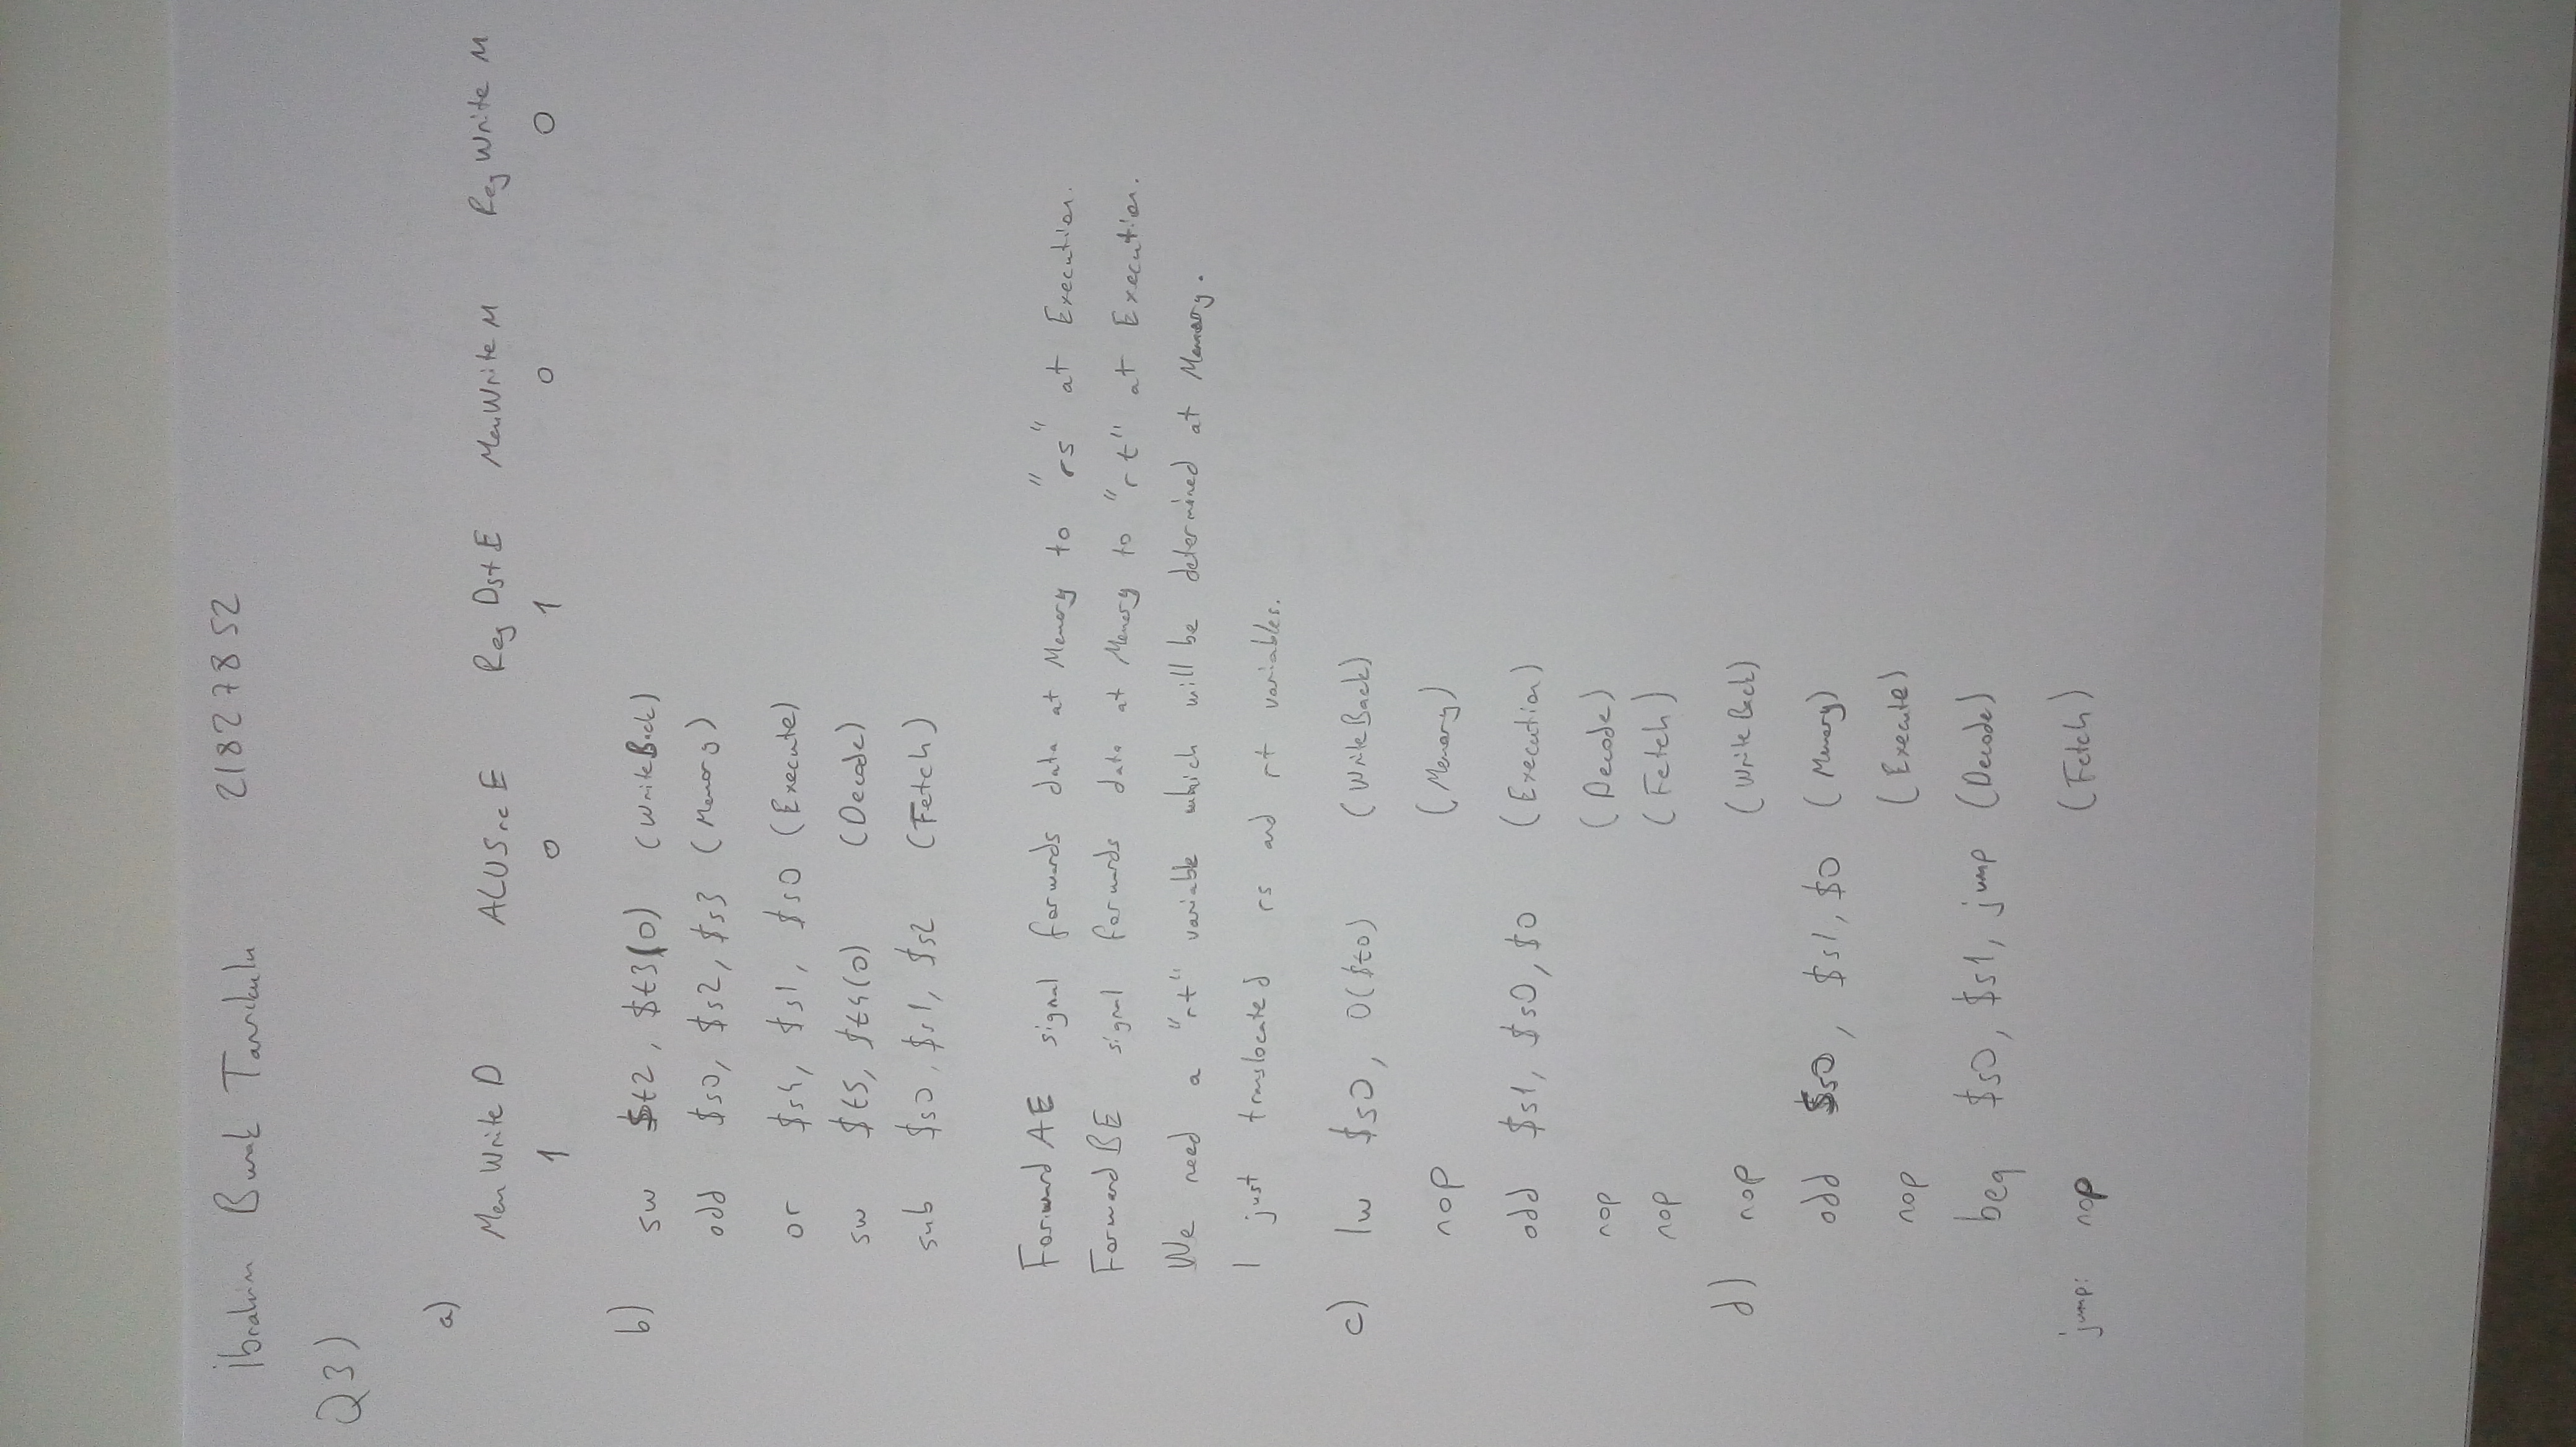 İbrahim Burak Tanrıkulu 21827852
Q3)
a)
MemWrite D ALUSrc E Reg Dst E MemWrite M Reg Write M
1 0 1 0 0
b) sw $t2, $t3(0) (WriteBack)
add $s0, $s2, $s3 (Memory)
or $s4, $s1, $s0 (Execute)
sw $t5, $t4(0) (Decode)
sub $s0, $s1, $s2 (Fetch)
Forward AE signal forwards data at Memory to "rs" at Execution.
Forward BE signal forwards data at Memory to "rt" at Execution.
We need a "rt" variable which will be determined at Memory.
I just translocated rs and rt variables.
c) lw $s0, 0($t0) (WriteBack)
nop (Memory)
add $s1, $s0, $0 (Execution)
nop (Decode)
nop (Fetch)
d) nop (WriteBack)
add $s0, $s1, $0 (Memory)
nop (Execute)
beq $s0, $s1, jump (Decode)
jump: nop (Fetch)